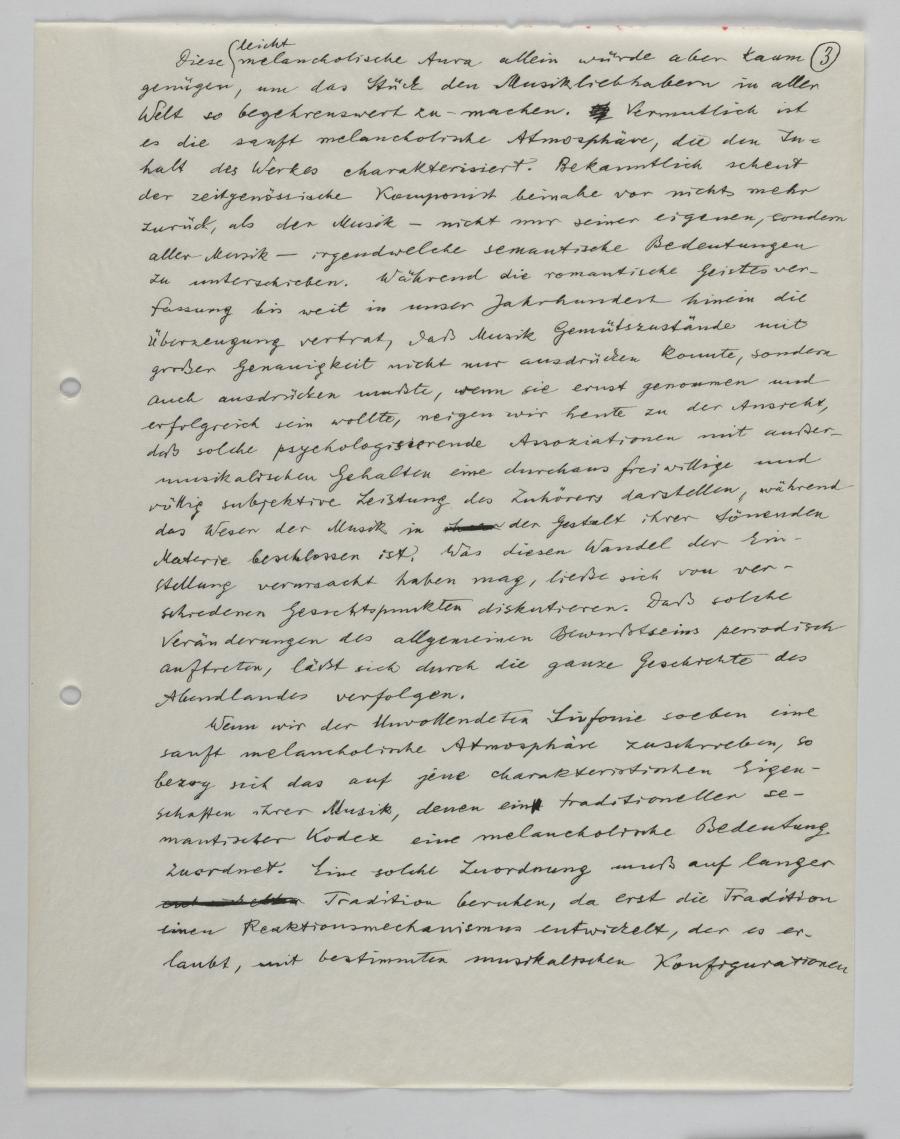 leicht
Diese melancholische Aura allein würde aber kaum ③
genügen, um das Stück den Musikliebhabern in aller
Welt so begehrenswert zu machen. Vermutlich ist
es die sanft melancholische Atmosphäre, die den In-
halt des Werkes charakterisiert. Bekanntlich scheut
der zeitgenössische Komponist beinahe vor nichts mehr
zurück, als der Musik – nicht nur seiner eigenen, sondern
aller Musik – irgendwelche semantische Bedeutungen
zu unterschieben. Während die romantische Geistesver-
fassung bis weit in unser Jahrhundert hinein die
Überzeugung vertrat, daß Musik Gemütszustände mit
großer Genauigkeit nicht nur ausdrücken konnte, sondern
auch ausdrücken mußte, wenn sie ernst genommen und
erfolgreich sein wollte, neigen wir heute zu der Ansicht,
daß solche psychologisierende Assoziationen mit außer-
musikalischen Gehalten eine durchaus freiwillige und
völlig subjektive Leistung des Zuhörers darstellen, während
das Wesen der Musik in der Gestalt ihrer tönenden
Materie beschlossen ist. Was diesen Wandel der Ein-
stellung verursacht haben mag, ließe sich von ver-
schiedenen Gesichtspunkten diskutieren. Daß solche
Veränderungen des allgemeinen Bewußtseins periodisch
auftreten, läßt sich durch die ganze Geschichte des
Abendlandes verfolgen.
Wenn wir der Unvollendeten Sinfonie soeben eine
sanft melancholische Atmosphäre zuschrieben, so
bezog sich das auf jene charakteristischen Eigen-
schaften ihrer Musik, denen ein traditioneller se-
mantischer Kodex eine melancholische Bedeutung
zuordnet. Eine solche Zuordnung muß auf langer
Tradition beruhen, da erst die Tradition
einen Reaktionsmechanismus entwickelt, der es er-
laubt, mit bestimmten musikalischen Konfigurationen